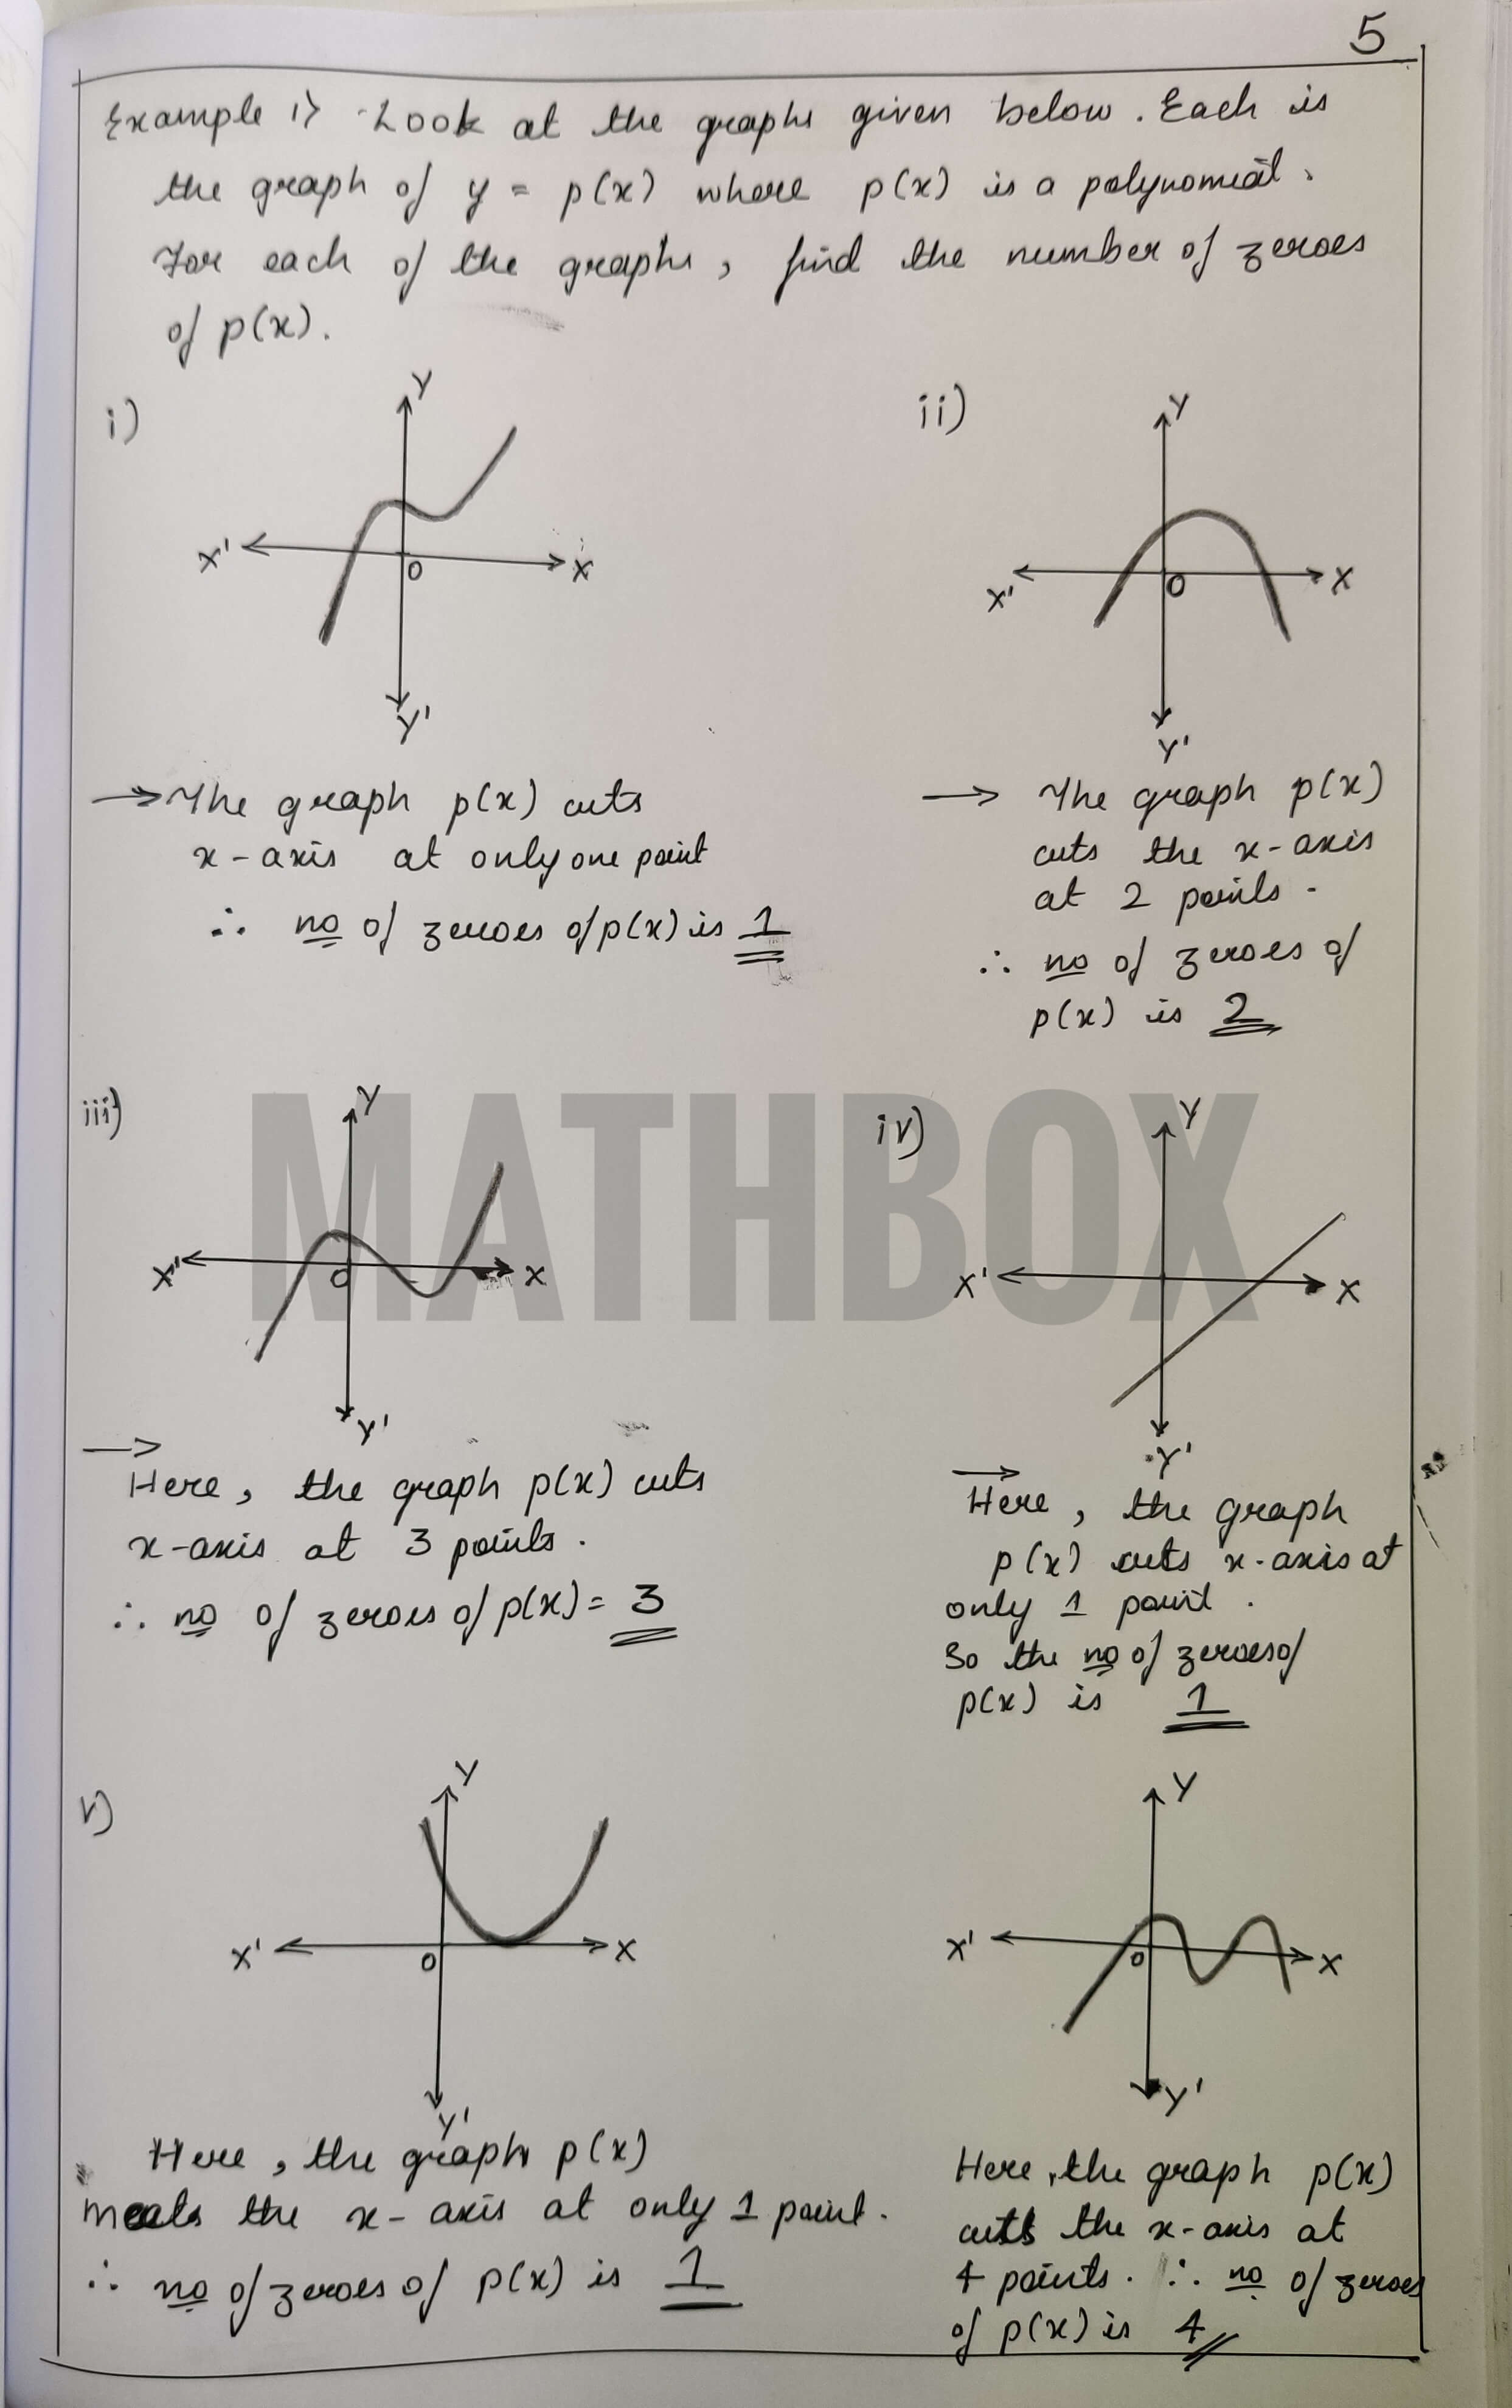 5
Example 1) Look at the graphs given below. Each is
the graph of y = p(x) where p(x) is a polynomial.
For each of the graphs, find the number of zeroes
of p(x).
i)
Y
X'
O
X
Y'
→ The graph p(x) cuts
x-axis at only one point
∴ no of zeroes of p(x) is 1
ii)
Y
X'
O
X
Y'
→ The graph p(x)
cuts the x-axis
at 2 points.
∴ no of zeroes of
p(x) is 2
MATHBOX
iii)
Y
X'
O
X
Y'
→
Here, the graph p(x) cuts
x-axis at 3 points.
∴ no of zeroes of p(x) = 3
iv)
Y
X'
X
Y'
→
Here, the graph
p(x) cuts x-axis at
only 1 point.
So the no of zeroes of
p(x) is 1
v)
Y
X'
O
X
Y'
Here, the graph p(x)
meets the x-axis at only 1 point.
∴ no of zeroes of p(x) is 1
Y
X'
O
X
Y'
Here, the graph p(x)
cuts the x-axis at
4 points. ∴ no of zeroes
of p(x) is 4